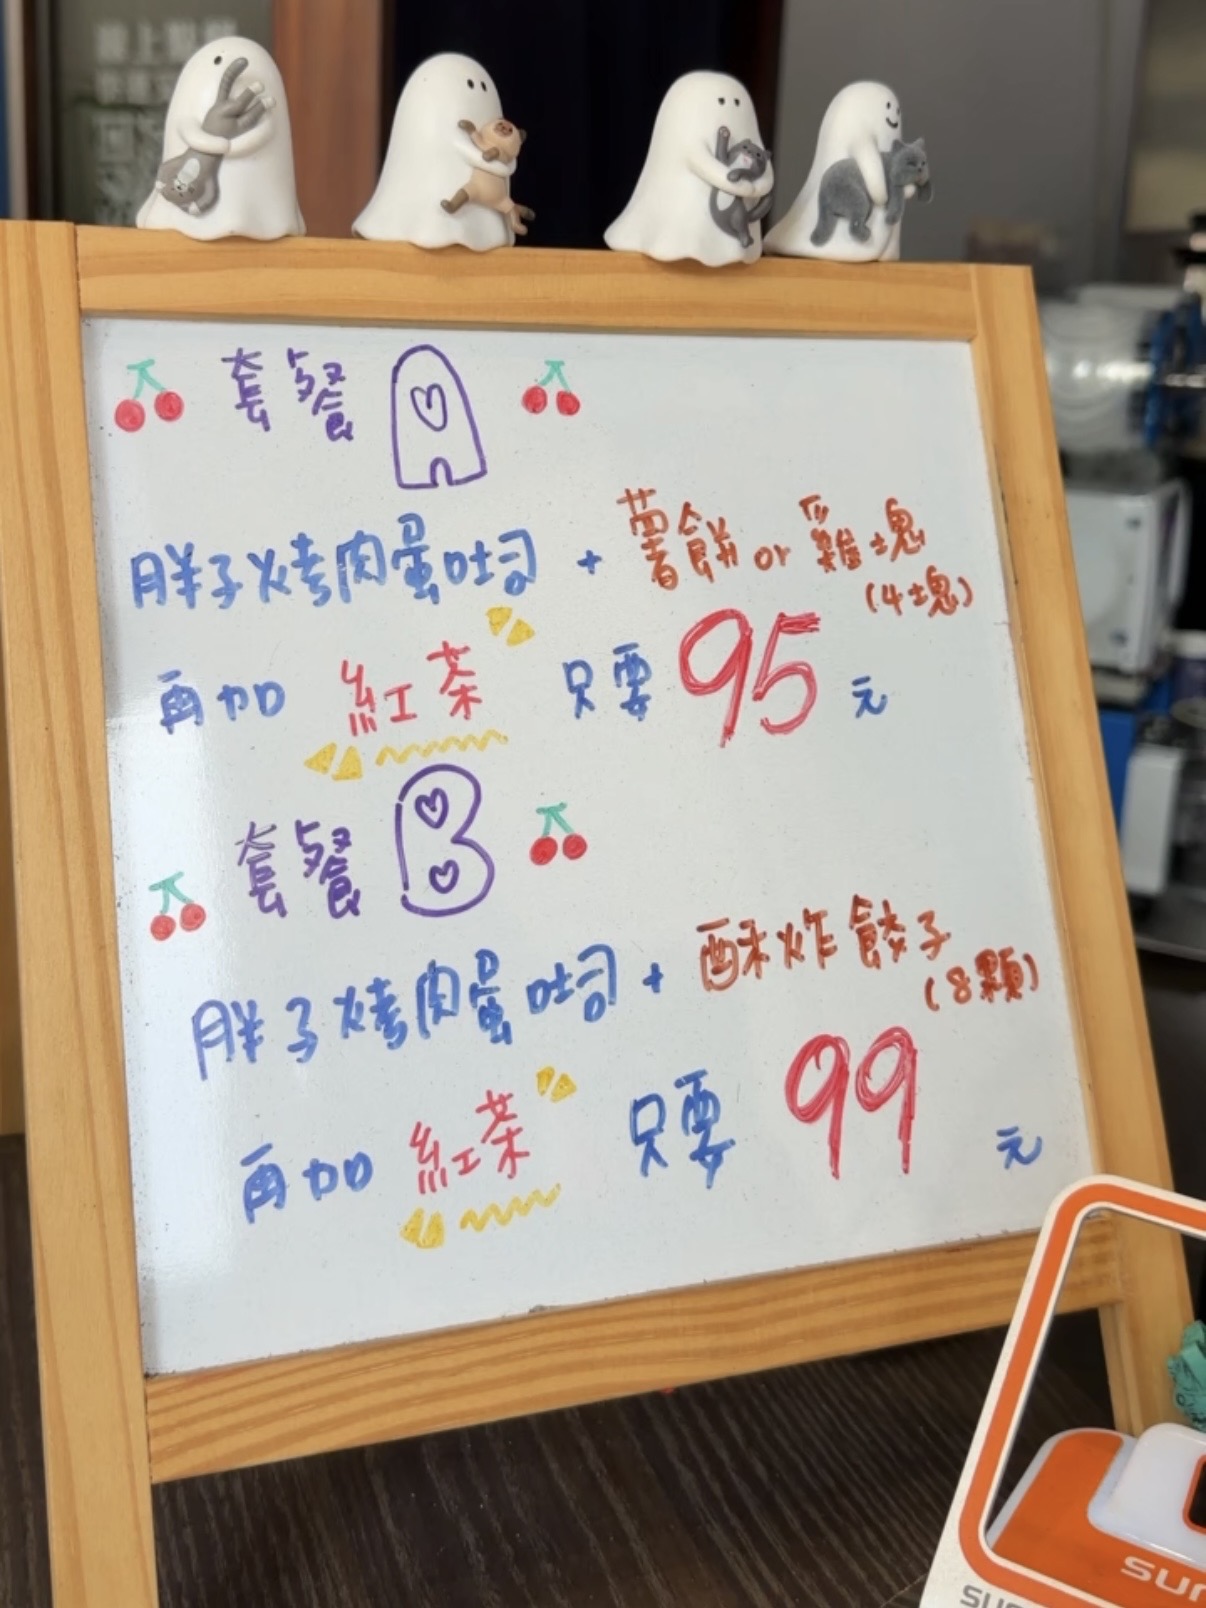 套餐 A
胖子烤肉蛋吐司 + 薯餅 or 雞塊
(4塊)
再加 紅茶 只要 95 元
套餐 B
胖子烤肉蛋吐司 + 酥炸餃子
(8顆)
再加 紅茶 只要 99 元